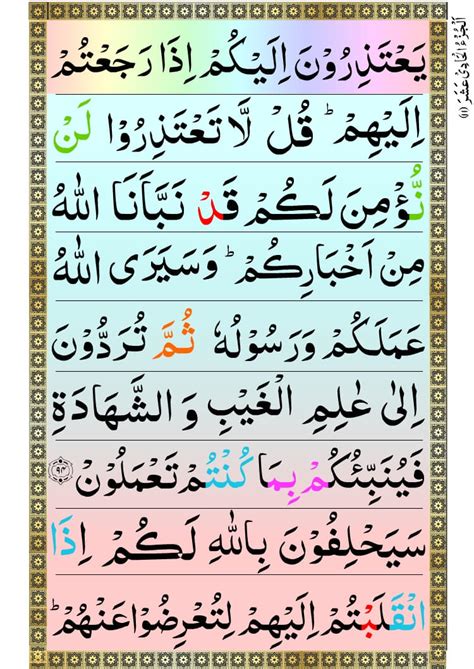 اَلْجُزْءُ الْحَادِیْ عَشَرَ (۱۱)
یَعْتَذِرُوْنَ اِلَیْكُمْ اِذَا رَجَعْتُمْ
اِلَیْهِمْ ؕ قُلْ لَّا تَعْتَذِرُوْا لَنْ
نُّؤْمِنَ لَكُمْ قَدْ نَبَّاَنَا اللّٰهُ
مِنْ اَخْبَارِكُمْ ؕ وَسَیَرَی اللّٰهُ
عَمَلَكُمْ وَرَسُوْلُهٗ ثُمَّ تُرَدُّوْنَ
اِلٰی عٰلِمِ الْغَیْبِ وَ الشَّهَادَةِ
فَیُنَبِّئُكُمْ بِمَا كُنْتُمْ تَعْمَلُوْنَ ۹۴
سَیَحْلِفُوْنَ بِاللّٰهِ لَكُمْ اِذَا
انْقَلَبْتُمْ اِلَیْهِمْ لِتُعْرِضُوْا عَنْهُمْ ؕ